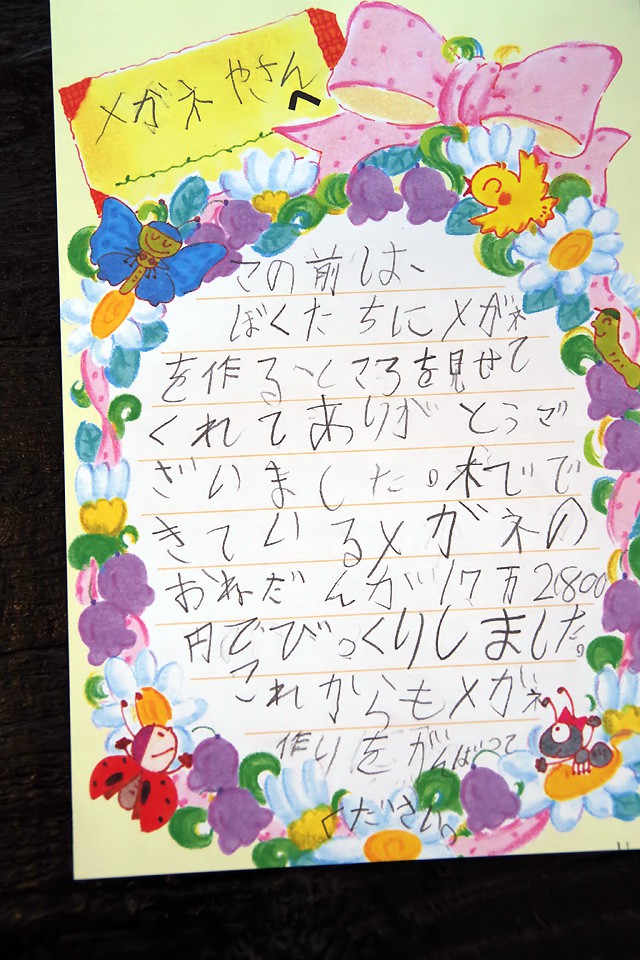 メガネやさん
へ
この前は、
ぼくたちにメガネ
を作るところを見せて
くれてありがとうご
ざいました。木でで
きているメガネの
おねだんが17万2800
円でびっくりしました。
これからもメガネ
作りをがんばって
ください。